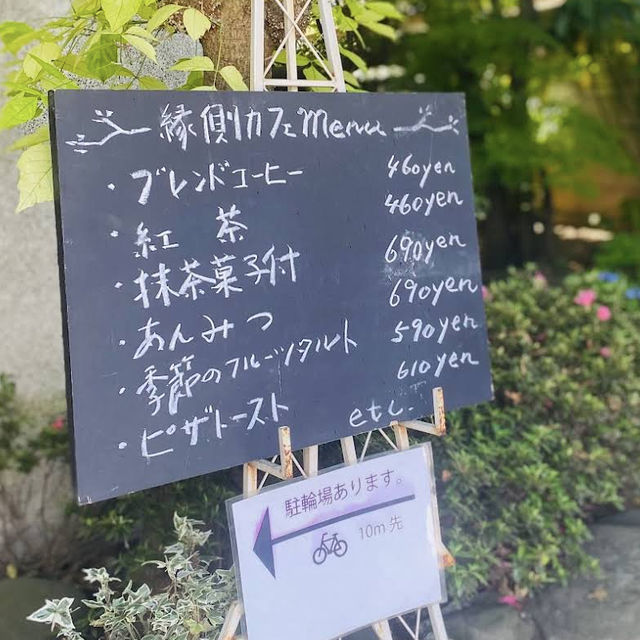 縁側カフェMenu
・ブレンドコーヒー 460yen
・紅茶 460yen
・抹茶菓子付 690yen
・あんみつ 690yen
・季節のフルーツタルト 590yen
・ピザトースト 610yen
etc.
駐輪場あります。
10m先